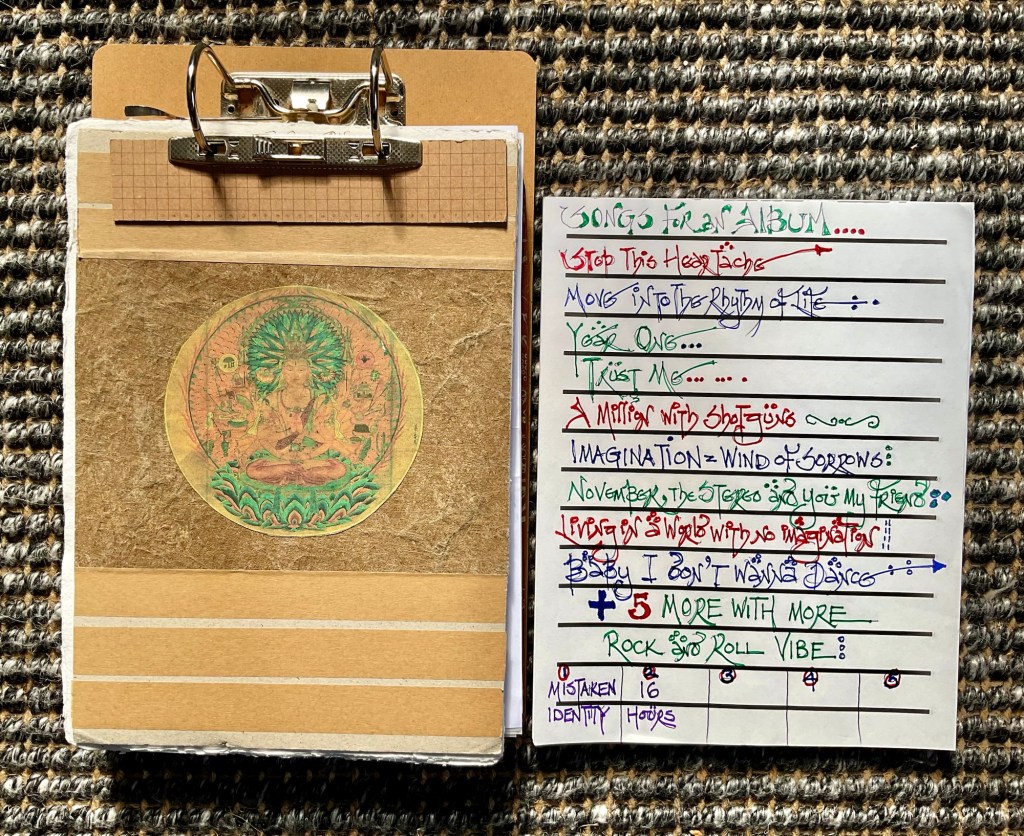 SONGS FOR AN ALBUM....
STOP THIS HEARTACHE
MOVE INTO THE RHYTHM OF LIFE
YEAR ONE...
TRUST ME... . .
A MILLION WITH SHOTGUNS
IMAGINATION = WIND OF SORROWS:
NOVEMBER, THE STEREO AND YOU MY FRIEND
LIVING IN A WORLD WITH NO IMAGINATION
BABY I DON'T WANNA DANCE
+ 5 MORE WITH MORE
ROCK AND ROLL VIBE
1 2 3 4 5
MISTAKEN 16
IDENTITY HOURS